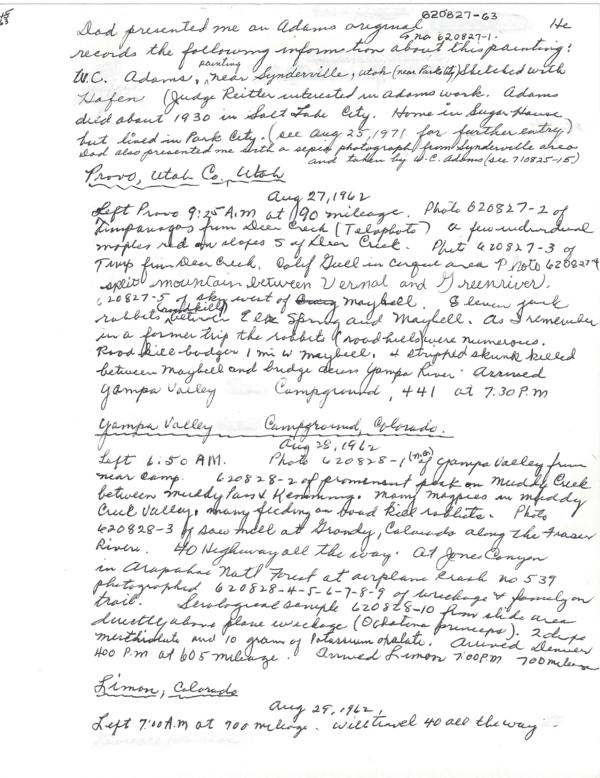 Dad presented me an Adams original 620827-63 He
G no 620827-1.
records the following information about this painting:
W.C. Adams, painting near Synderville, Utah (near Park City) Sketched with
Hafen (Judge Reitler interested in Adams work. Adams
died about 1930 in Salt Lake City. Home in Sugar House
but lived in Park City. (see Aug 25, 1971 for further entry)
Dad also presented me with a sepia photograph from Synderville area
and taken by W.C. Adams (see 710825-15)
Provo, Utah Co., Utah
Aug 27, 1962
Left Provo 9:25 A.M at 190 mileage. Photo 620827-2 of
Timpanogas from Deer Creek (Telephoto) a few individual
maples red on slopes S of Deer Creek. Photo 620827-3 of
Timp from Deer Creek. Calif Gull in cirque area Photo 620827-4
split mountain between Vernal and Greenriver.
620827-5 of sky west of Maybell. Eleven jack
rabbits (road kill) between Elk Spring and Maybell. As I remember
in a former trip the rabbits (road kills) were numerous.
Road kill badger 1 mi W Maybell. 4 stripped skunk killed
between Maybell and bridge across Yampa River. Arrived
Yampa Valley Campground, 441 at 7:30 P.M
Yampa Valley Campground, Colorado.
Aug 28, 1962
Left 6:50 AM. Photo 620828-1 of Yampa Valley from
near camp. 620828-2 of prominent peak on Muddy Creek
between Muddy Pass & Kremming. Many magpies in Muddy
Creek Valley, many feeding on road kill rabbits. Photo
620828-3 of saw mill at Grandy, Colorado along the Fraser
River. 40 Highway all the way. At Jones Canyon
in Arapahoe Natl Forest at airplane crash no 539
photographed 620828-4-5-6-7-8-9 of wreckage & family on
trail. Serological sample 620828-10 from slide area
directly above plane wreckage (Ochotona princeps). 2 drops
merthiolate and 10 gram of Potassium oxalate. Arrived Denver
400 P.M at 605 mileage. Arrived Limon 7:00 PM 700 mileage
Limon, Colorado
Aug 29, 1962,
Left 7:00 A.M at 700 mileage. Will travel 40 all the way.